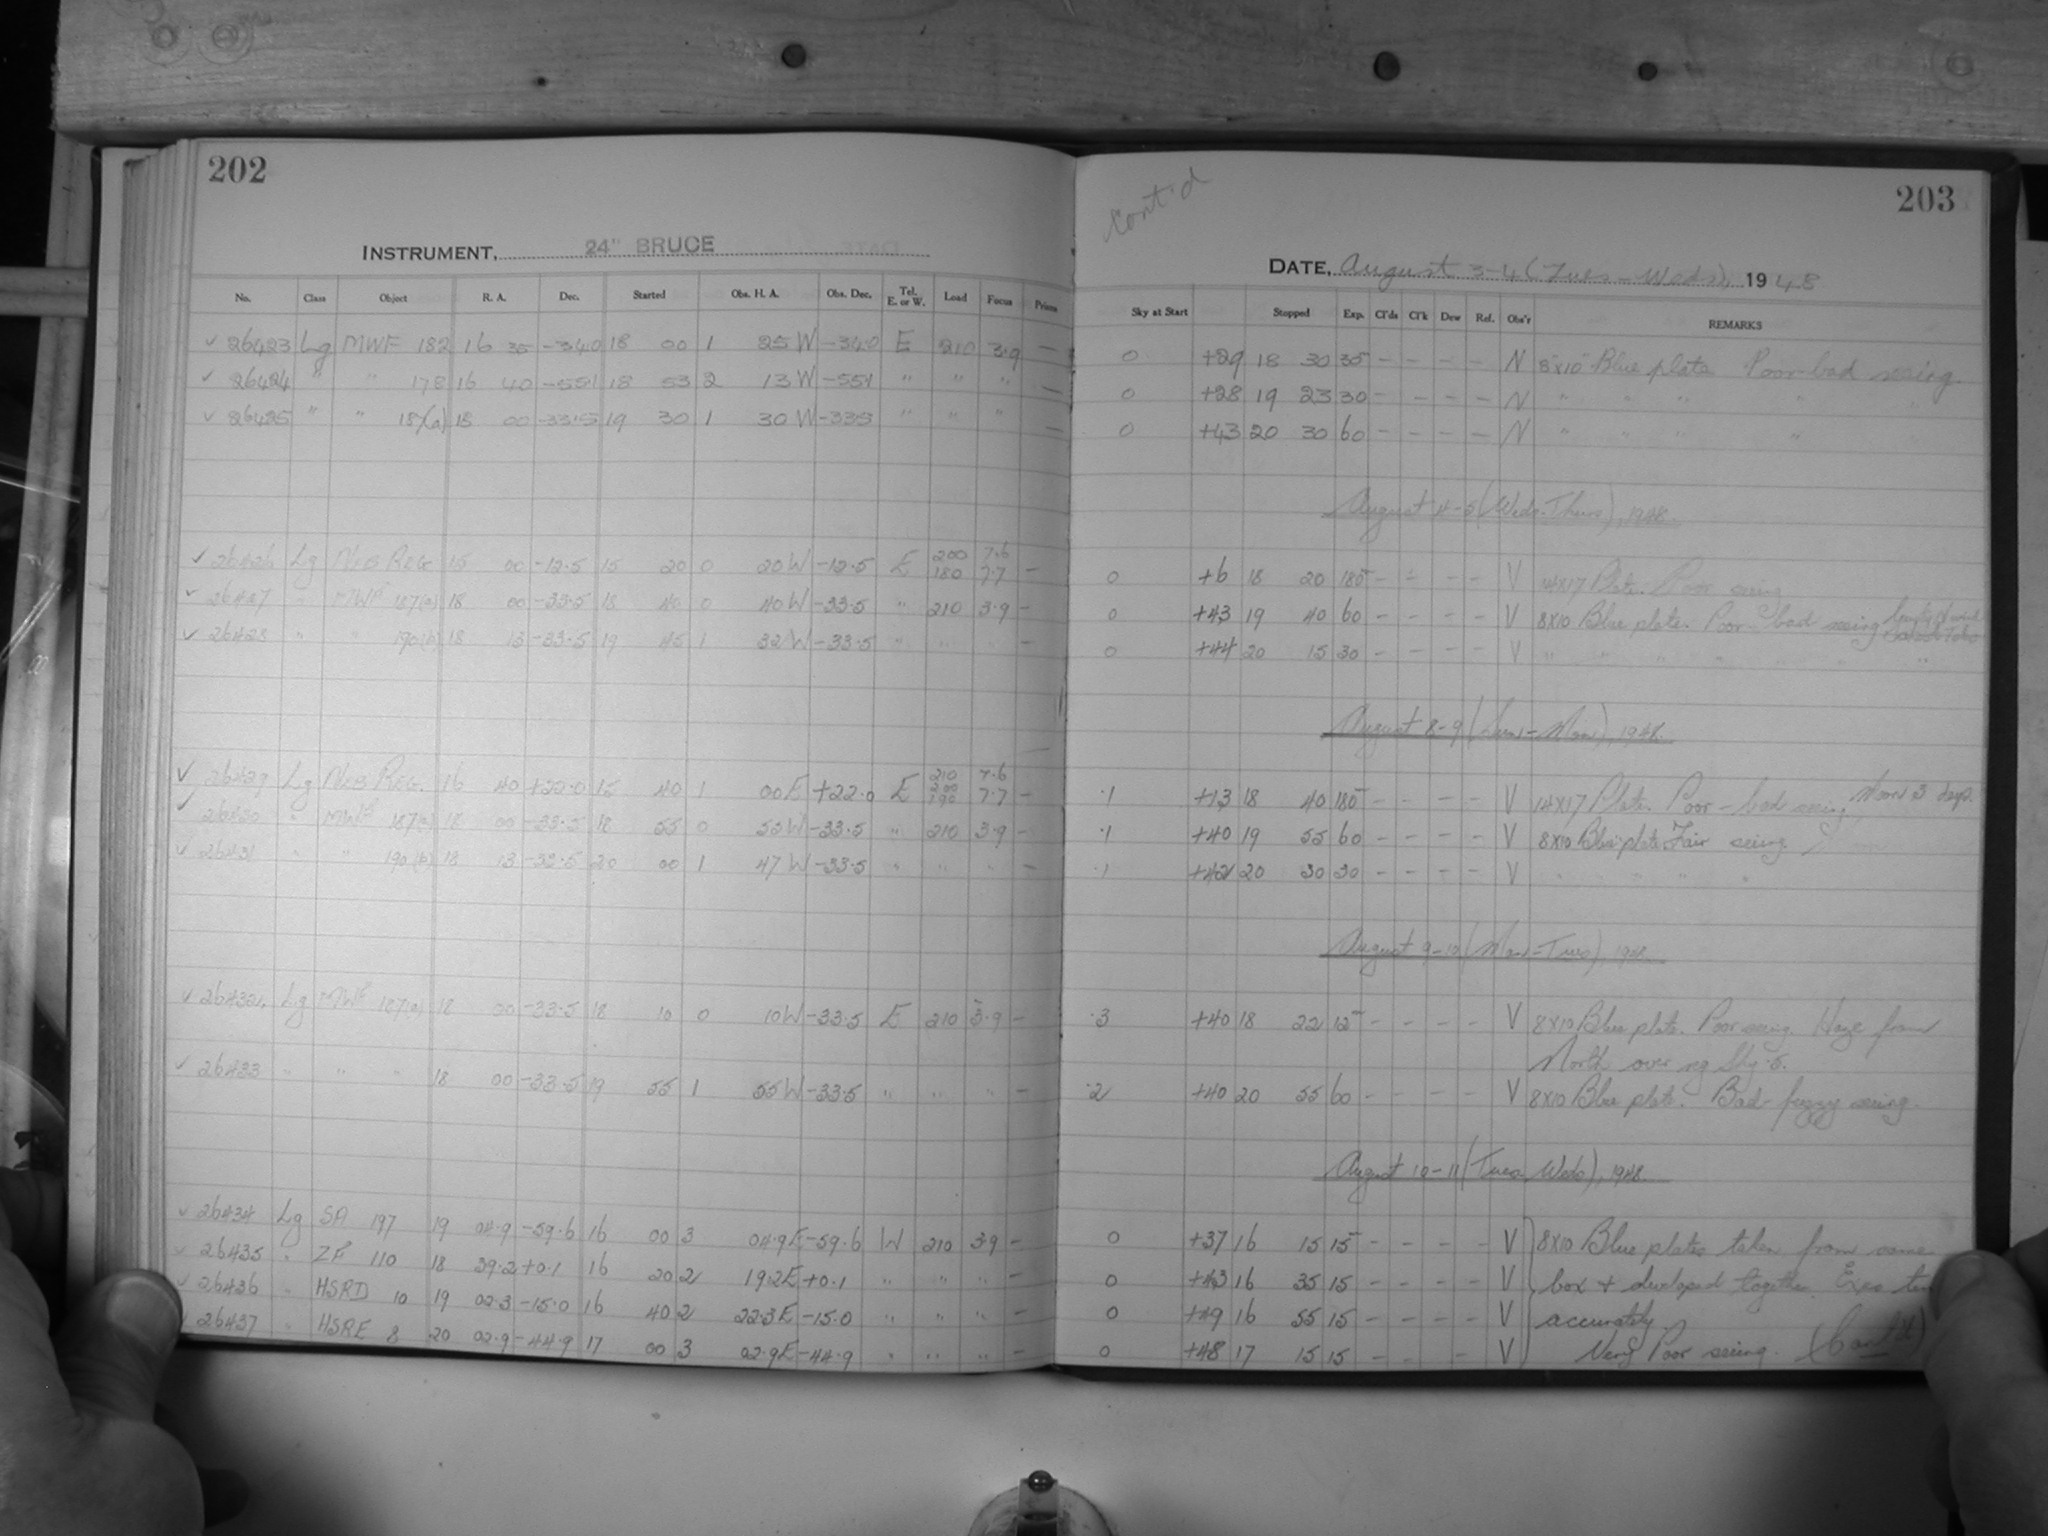 202
INSTRUMENT, 24" BRUCE
No. Class Object R. A. Dec. Started Obs. H. A. Obs. Dec. Tel. E. or W. Load Focus Prisms
✓ 26423 Lg MWF 182 16 35 -34.0 18 00 1 25 W -34.0 E 210 3.9 —
✓ 26424 " " 178 16 40 -55.1 18 53 2 13 W -55.1 " " " —
✓ 26425 " " 187(a) 18 00 -33.5 19 30 1 30 W -33.5 " " " —
✓ 26426 Lg NEB REG 15 00 -12.5 15 20 0 20 W -12.5 E 200 180 7.6 7.7 -
✓ 26427 " MWF 187(a) 18 00 -33.5 18 40 0 40 W -33.5 " 210 3.9 -
✓ 26428 " " 190(b) 18 13 -33.5 19 45 1 32 W -33.5 " " " -
✓ 26429 Lg NEB REG. 16 40 +22.0 15 40 1 00 E +22.0 E 210 200 190 7.6 7.7 -
✓ 26430 " MWF 187(a) 18 00 -33.5 18 55 0 55 W -33.5 " 210 3.9 -
✓ 26431 " " 190(b) 18 13 -33.5 20 00 1 47 W -33.5 " " " -
✓ 26432 Lg MWF 187(a) 18 00 -33.5 18 10 0 10 W -33.5 E 210 3.9 -
✓ 26433 " " " 18 00 -33.5 19 55 1 55 W -33.5 " " " -
✓ 26434 Lg SA 197 19 04.9 -59.6 16 00 3 04.9 E -59.6 W 210 3.9 -
✓ 26435 " ZF 110 18 39.2 +0.1 16 20 2 19.2 E +0.1 " " " -
✓ 26436 " HSRD 10 19 02.3 -15.0 16 40 2 22.3 E -15.0 " " " -
✓ 26437 " HSRE 8 20 02.9 -44.9 17 00 3 02.9 E -44.9 " " " -
Cont'd
203
DATE, August 3-4 (Tues-Weds), 1948
Sky at Start Stopped Exp. Cl'ds Cl'k Dew Ref. Obs'r REMARKS
0 +29 18 30 30 - - - - N 8"x10" Blue plate Poor-bad seeing
0 +28 19 23 30 - - - - N " " " " "
0 +43 20 30 60 - - - - N " " " "
August 4-5 (Weds-Thurs), 1948.
0 +6 18 20 180 - - - - V 14x17 Plate. Poor seeing
0 +43 19 40 60 - - - - V 8x10 Blue plate. Poor-bad seeing
0 +44 20 15 30 - - - - V " " " " " " "
August 8-9 (Sun-Mon), 1948.
.1 +13 18 40 180 - - - - V 14x17 Plate. Poor-bad seeing, Moon 3 days.
.1 +40 19 55 60 - - - - V 8x10 Blue plate. Fair seeing
.1 +42 20 30 30 - - - - V " " " " "
August 9-10 (Mon-Tues), 1948.
.3 +40 18 22 12 - - - - V 8x10 Blue plate. Poor seeing. Haze from
North over reg Sky .5.
.2 +40 20 55 60 - - - - V 8x10 Blue plate. Bad-fuzzy seeing.
August 10-11 (Tues-Weds), 1948.
0 +37 16 15 15 - - - - V 8x10 Blue plates taken from same
0 +43 16 35 15 - - - - V box & developed together.
0 +49 16 55 15 - - - - V accurately.
0 +48 17 15 15 - - - V Very Poor seeing. (Cont'd)